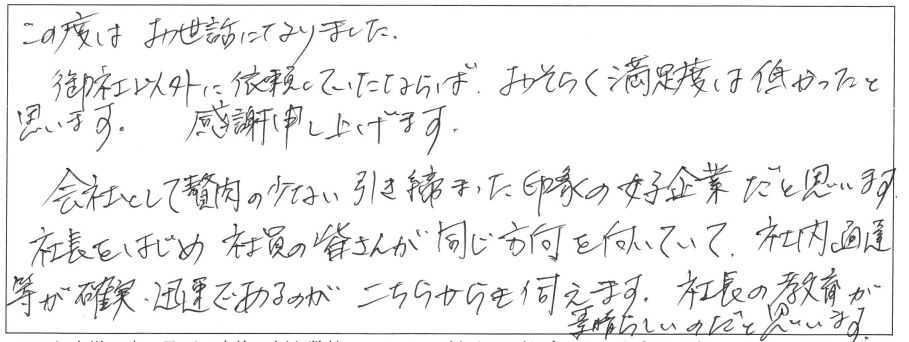 この度は お世話になりました.
御社以外に依頼していたならば、おそらく満足度は低かったと
思います。 感謝申し上げます.
会社として贅肉の少ない引き締まった印象の好企業だと思います.
社長をはじめ 社員の皆さんが同じ方向を向いていて、社内通達
等が確実・迅速であるのが こちらからも伺えます. 社長の教育が
素晴らしいのだと思います.